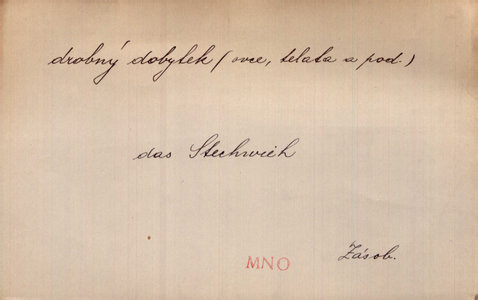 drobný dobytek (ovce, telata a pod.)
das Stechvieh
MNO
Zásob.